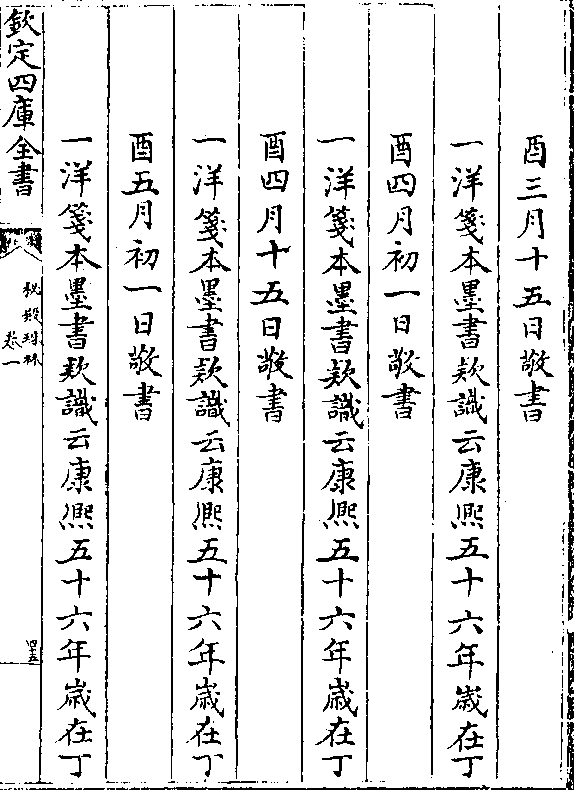 酉三月十五日敬書
一洋箋本墨書款識云康熙五十六年歳在丁
酉四月初一日敬書
一洋箋本墨書款識云康熙五十六年歳在丁
酉四月十五日敬書
一洋箋本墨書款識云康熙五十六年歳在丁
酉五月初一日敬書
一洋箋本墨書款識云康熙五十六年歳在丁
欽定四庫全書
秘殿珠林
卷一
四十五